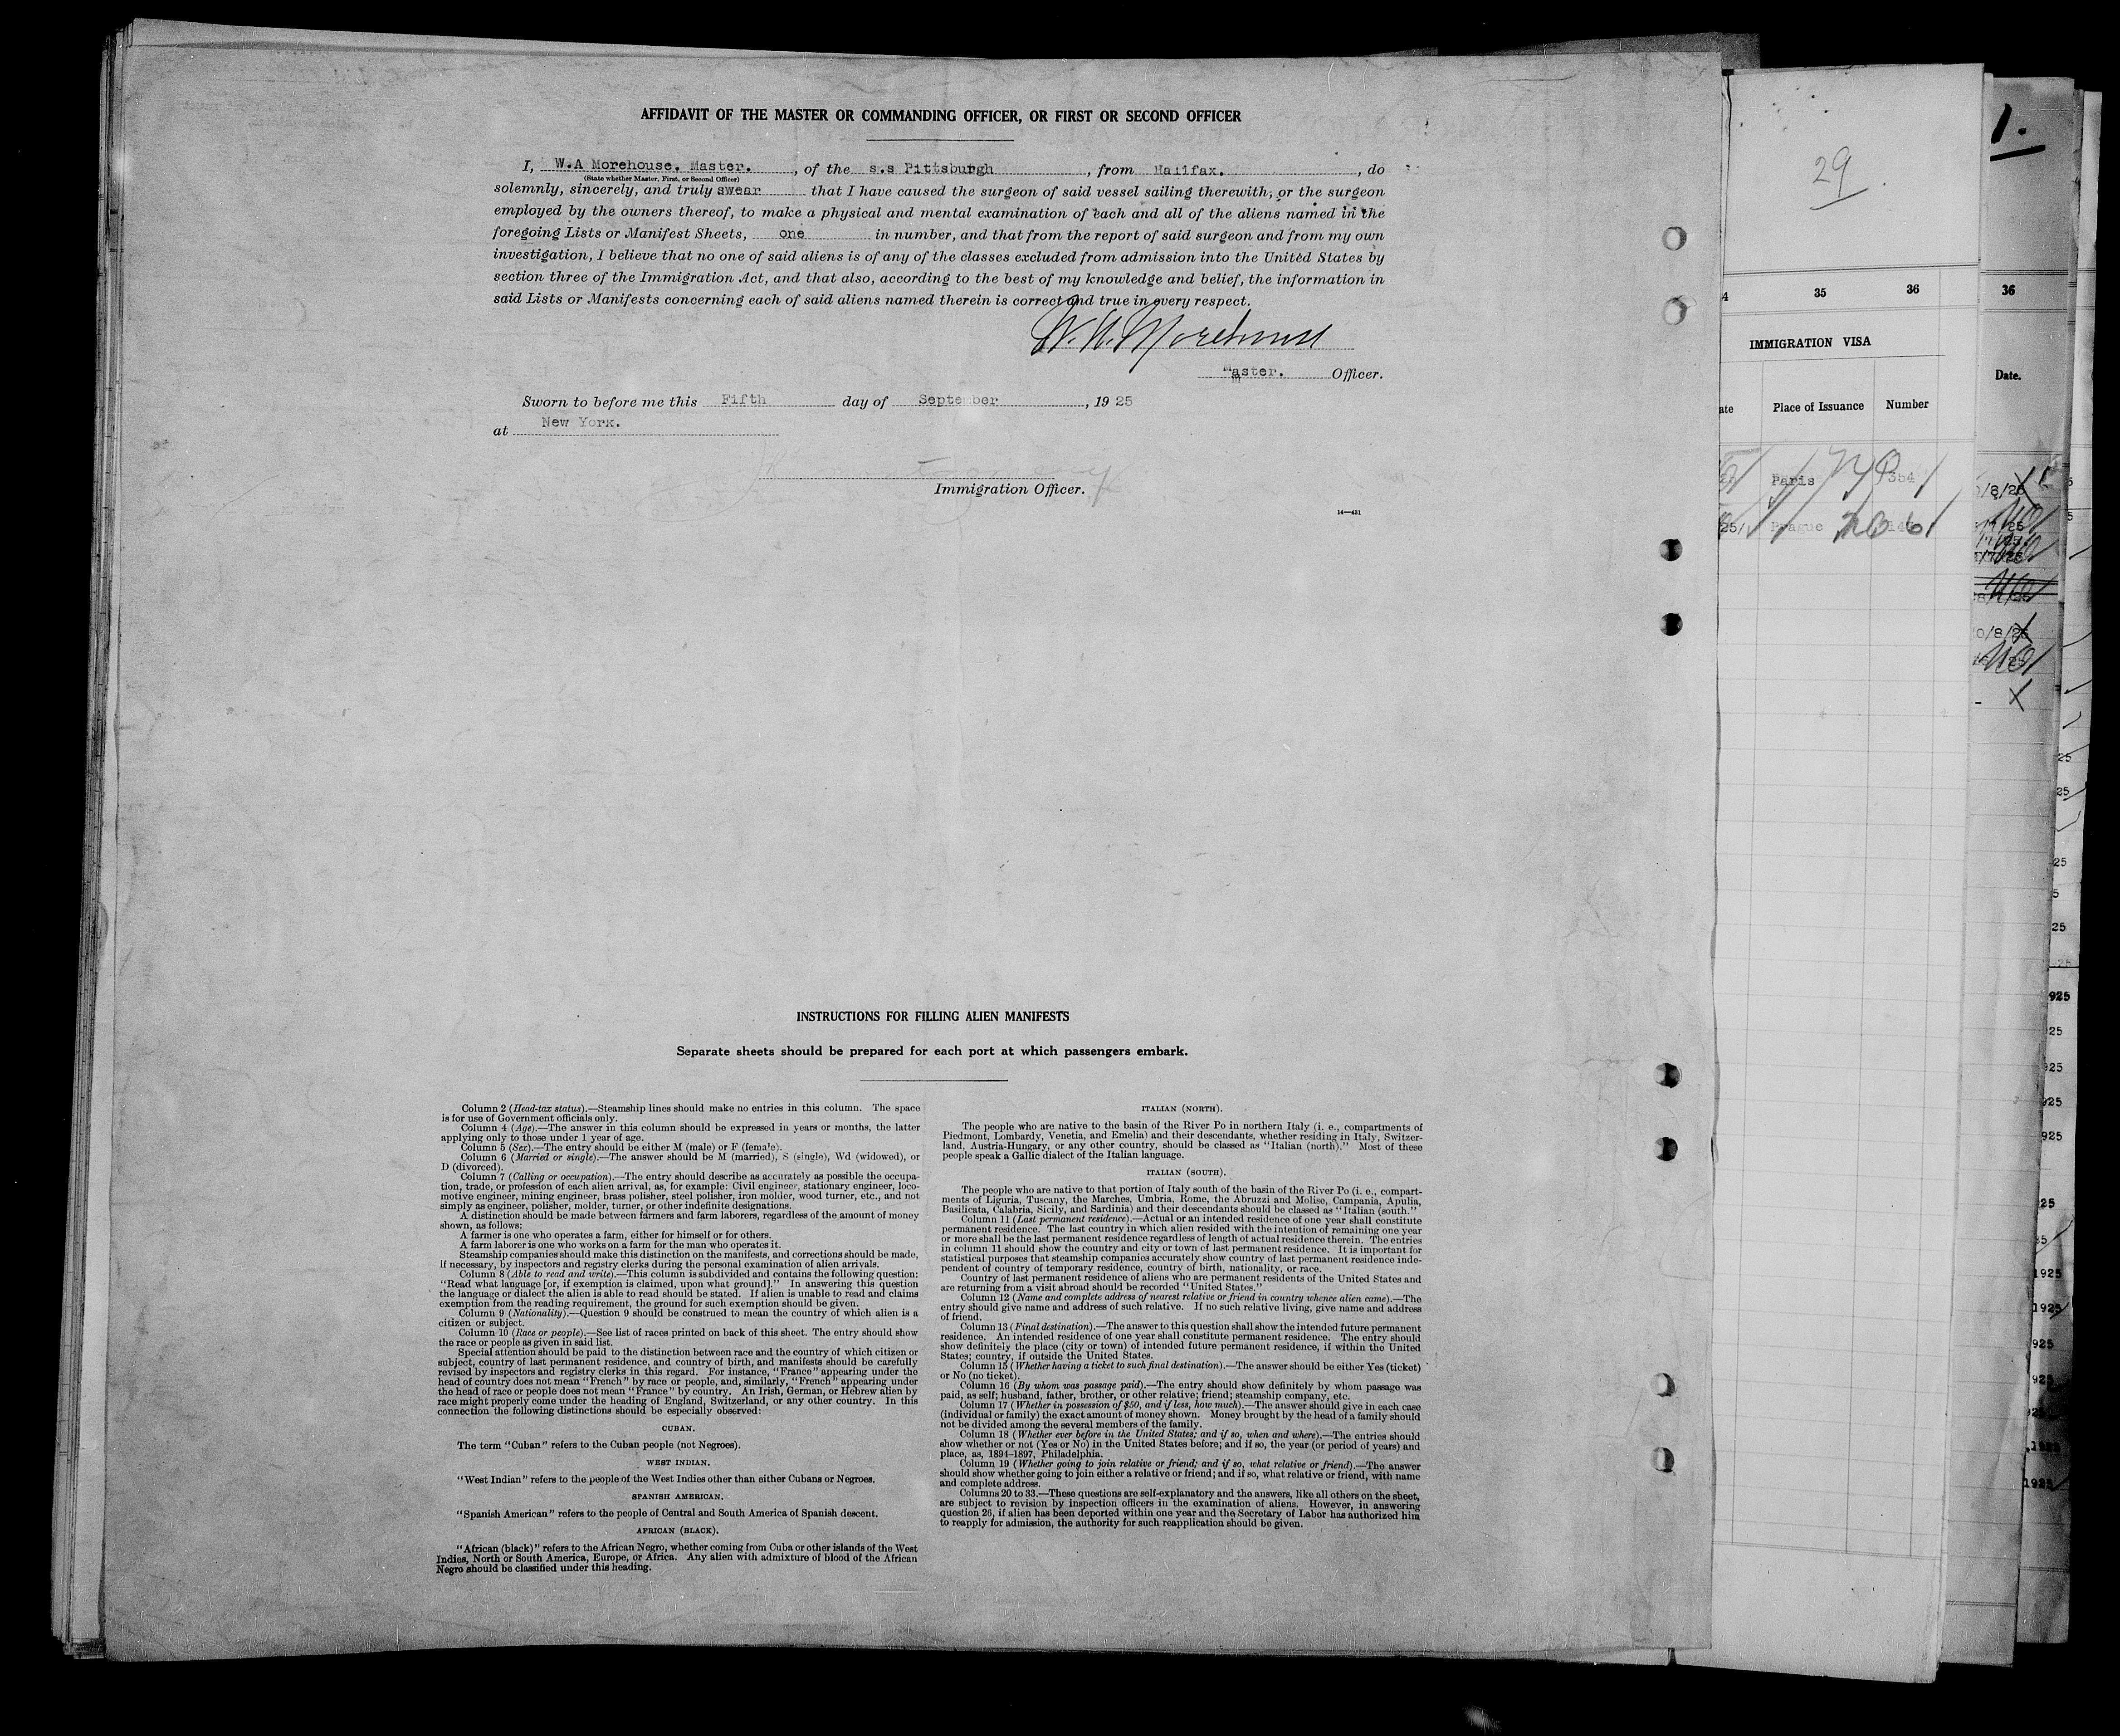 AFFIDAVIT OF THE MASTER OR COMMANDING OFFICER, OR FIRST OR SECOND OFFICER
I, W.A Morehouse. Master. , of the s.s Pittsburgh , from Halifax. , do
(State whether Master, First, or Second Officer)
solemnly, sincerely, and truly swear that I have caused the surgeon of said vessel sailing therewith, or the surgeon
employed by the owners thereof, to make a physical and mental examination of each and all of the aliens named in the
foregoing Lists or Manifest Sheets, one in number, and that from the report of said surgeon and from my own
investigation, I believe that no one of said aliens is of any of the classes excluded from admission into the United States by
section three of the Immigration Act, and that also, according to the best of my knowledge and belief, the information in
said Lists or Manifests concerning each of said aliens named therein is correct and true in every respect.
W. A. Morehouse
Master. Officer.
Sworn to before me this Fifth day of September , 19 25
at New York.
Immigration Officer.
14—431
INSTRUCTIONS FOR FILLING ALIEN MANIFESTS
Separate sheets should be prepared for each port at which passengers embark.
Column 2 (Head-tax status).—Steamship lines should make no entries in this column. The space
is for use of Government officials only.
Column 4 (Age).—The answer in this column should be expressed in years or months, the latter
applying only to those under 1 year of age.
Column 5 (Sex).—The entry should be either M (male) or F (female).
Column 6 (Married or single).—The answer should be M (married), S (single), Wd (widowed), or
D (divorced).
Column 7 (Calling or occupation).—The entry should describe as accurately as possible the occupa-
tion, trade, or profession of each alien arrival, as, for example: Civil engineer, stationary engineer, loco-
motive engineer, mining engineer, brass polisher, steel polisher, iron molder, wood turner, etc., and not
simply as engineer, polisher, molder, turner, or other indefinite designations.
A distinction should be made between farmers and farm laborers, regardless of the amount of money
shown, as follows:
A farmer is one who operates a farm, either for himself or for others.
A farm laborer is one who works on a farm for the man who operates it.
Steamship companies should make this distinction on the manifests, and corrections should be made,
if necessary, by inspectors and registry clerks during the personal examination of alien arrivals.
Column 8 (Able to read and write).—This column is subdivided and contains the following question:
"Read what language [or, if exemption is claimed, upon what ground]." In answering this question
the language or dialect the alien is able to read should be stated. If alien is unable to read and claims
exemption from the reading requirement, the ground for such exemption should be given.
Column 9 (Nationality).—Question 9 should be construed to mean the country of which alien is a
citizen or subject.
Column 10 (Race or people).—See list of races printed on back of this sheet. The entry should show
the race or people as given in said list.
Special attention should be paid to the distinction between race and the country of which citizen or
subject, country of last permanent residence, and country of birth, and manifests should be carefully
revised by inspectors and registry clerks in this regard. For instance, "France" appearing under the
head of country does not mean "French" by race or people, and, similarly, "French" appearing under
the head of race or people does not mean "France" by country. An Irish, German, or Hebrew alien by
race might properly come under the heading of England, Switzerland, or any other country. In this
connection the following distinctions should be especially observed:
CUBAN.
The term "Cuban" refers to the Cuban people (not Negroes).
WEST INDIAN.
"West Indian" refers to the people of the West Indies other than either Cubans or Negroes.
SPANISH AMERICAN.
"Spanish American" refers to the people of Central and South America of Spanish descent.
AFRICAN (BLACK).
"African (black)" refers to the African Negro, whether coming from Cuba or other islands of the West
Indies, North or South America, Europe, or Africa. Any alien with admixture of blood of the African
Negro should be classified under this heading.
ITALIAN (NORTH).
The people who are native to the basin of the River Po in northern Italy (i. e., compartments of
Piedmont, Lombardy, Venetia, and Emelia) and their descendants, whether residing in Italy, Switzer-
land, Austria-Hungary, or any other country, should be classed as "Italian (north)." Most of these
people speak a Gallic dialect of the Italian language.
ITALIAN (SOUTH).
The people who are native to that portion of Italy south of the basin of the River Po (i. e., compart-
ments of Liguria, Tuscany, the Marches, Umbria, Rome, the Abruzzi and Molise, Campania, Apulia,
Basilicata, Calabria, Sicily, and Sardinia) and their descendants should be classed as "Italian (south."
Column 11 (Last permanent residence).—Actual or an intended residence of one year shall constitute
permanent residence. The last country in which alien resided with the intention of remaining one year
or more shall be the last permanent residence regardless of length of actual residence therein. The entries
in column 11 should show the country and city or town of last permanent residence. It is important for
statistical purposes that steamship companies accurately show country of last permanent residence inde-
pendent of country of temporary residence, country of birth, nationality, or race.
Country of last permanent residence of aliens who are permanent residents of the United States and
are returning from a visit abroad should be recorded "United States."
Column 12 (Name and complete address of nearest relative or friend in country whence alien came).—The
entry should give name and address of such relative. If no such relative living, give name and address
of friend.
Column 13 (Final destination).—The answer to this question shall show the intended future permanent
residence. An intended residence of one year shall constitute permanent residence. The entry should
show definitely the place (city or town) of intended future permanent residence, if within the United
States; country, if outside the United States.
Column 15 (Whether having a ticket to such final destination).—The answer should be either Yes (ticket)
or No (no ticket).
Column 16 (By whom was passage paid).—The entry should show definitely by whom passage was
paid, as self; husband, father, brother, or other relative; friend; steamship company, etc.
Column 17 (Whether in possession of $50, and if less, how much).—The answer should give in each case
(individual or family) the exact amount of money shown. Money brought by the head of a family should
not be divided among the several members of the family.
Column 18 (Whether ever before in the United States; and if so, when and where).—The entries should
show whether or not (Yes or No) in the United States before; and if so, the year (or period of years) and
place, as, 1894-1897, Philadelphia.
Column 19 (Whether going to join relative or friend; and if so, what relative or friend).—The answer
should show whether going to join either a relative or friend; and if so, what relative or friend, with name
and complete address.
Columns 20 to 33.—These questions are self-explanatory and the answers, like all others on the sheet,
are subject to revision by inspection officers in the examination of aliens. However, in answering
question 26, if alien has been deported within one year and the Secretary of Labor has authorized him
to reapply for admission, the authority for such reapplication should be given.
29
35 36
IMMIGRATION VISA
Place of Issuance Number
Paris
Prague
1.
36
Date.